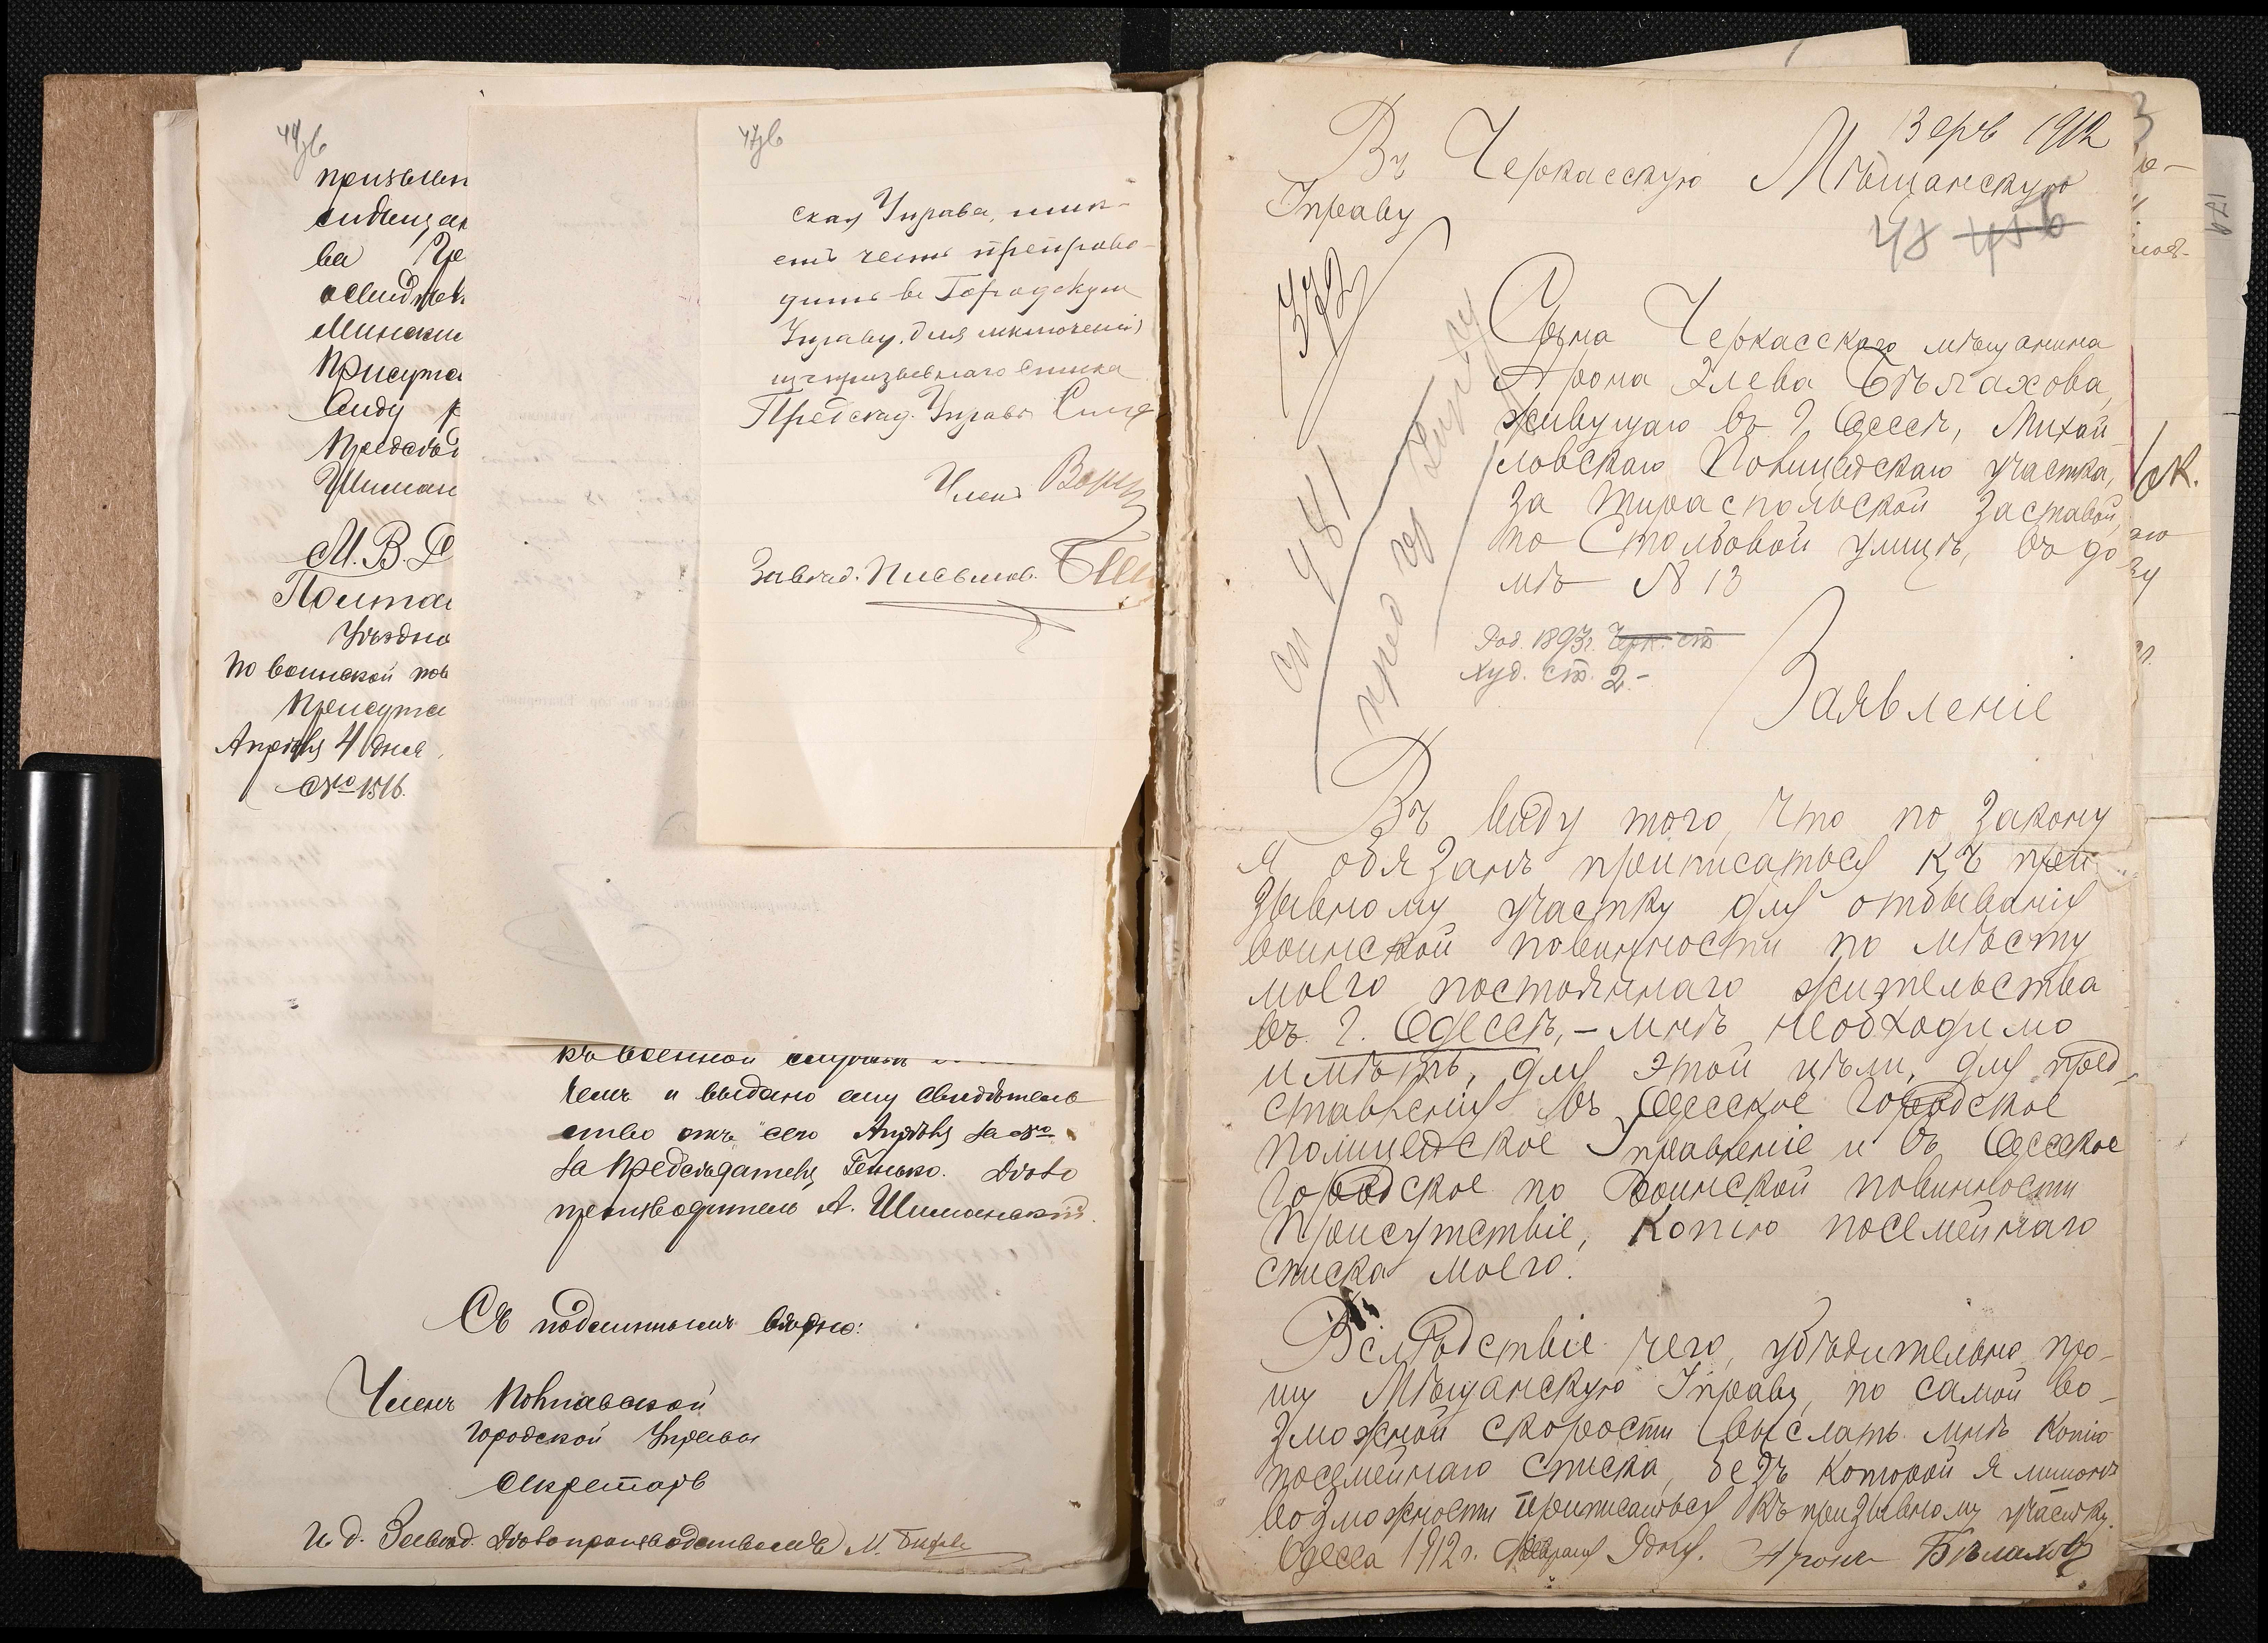 44 об
призыв
Мински
Присут
Предсѣд
Шиман
М. В. Д.
Полта
Уѣздно
по воинской пов
Присут
Апрѣля 4 дня
№ 1516.
47 об
ская Управа, имѣ-
етъ честь препрово-
дить въ Городскую
Управу, для исключенія
изъ призывнаго списка
Предсѣд. Управы
Членъ
Завѣд. Письмов.
къ военной службѣ
ченъ и выдано ему свидѣтель
ство отъ сего Апрѣля за №
За Предсѣдателя Генько. Дѣло
производитель А. Шиманскій.
Съ подлиннымъ вѣрно:
Членъ Полтавской
Городской Управы
Секретарь
И. д. Завѣд. Дѣлопроизводствомъ М.
3 фев 1912
Въ Черкасскую Мѣщанскую
Управу
48
372
Сына Черкасскаго мѣщанина
Арона Элева Бѣлахова,
живущаго въ г. Одессѣ, Михай-
ловскаго Полицейскаго участка,
за Тираспольской заставой,
по Столбовой улицѣ, въ до
мѣ № 13
Род. 1893 г. Черк. ст.
Худ. ст. 2.-
Заявленіе
Въ виду того, что по закону
я обязанъ приписаться къ при
зывному участку для отбыванія
воинской повинности по мѣсту
моего постояннаго жительства
въ г. Одессѣ, - мнѣ необходимо
имѣть, для этой цѣли, для пред-
ставленія въ Одесское городское
полицейское Управленіе и въ Одесское
Городское по воинской повинности
Присутствіе, копію посемейнаго
списка моего.
Вслѣдствіе чего, убѣдительно про-
шу Мѣщанскую Управу, по самой во-
зможной скорости выслать мнѣ копію
посемейнаго списка, безъ которой я лишонъ
возможности приписаться къ призывному участку.
Одесса 1912 г. Февраля 1 дня. Аронъ Бѣлаховъ